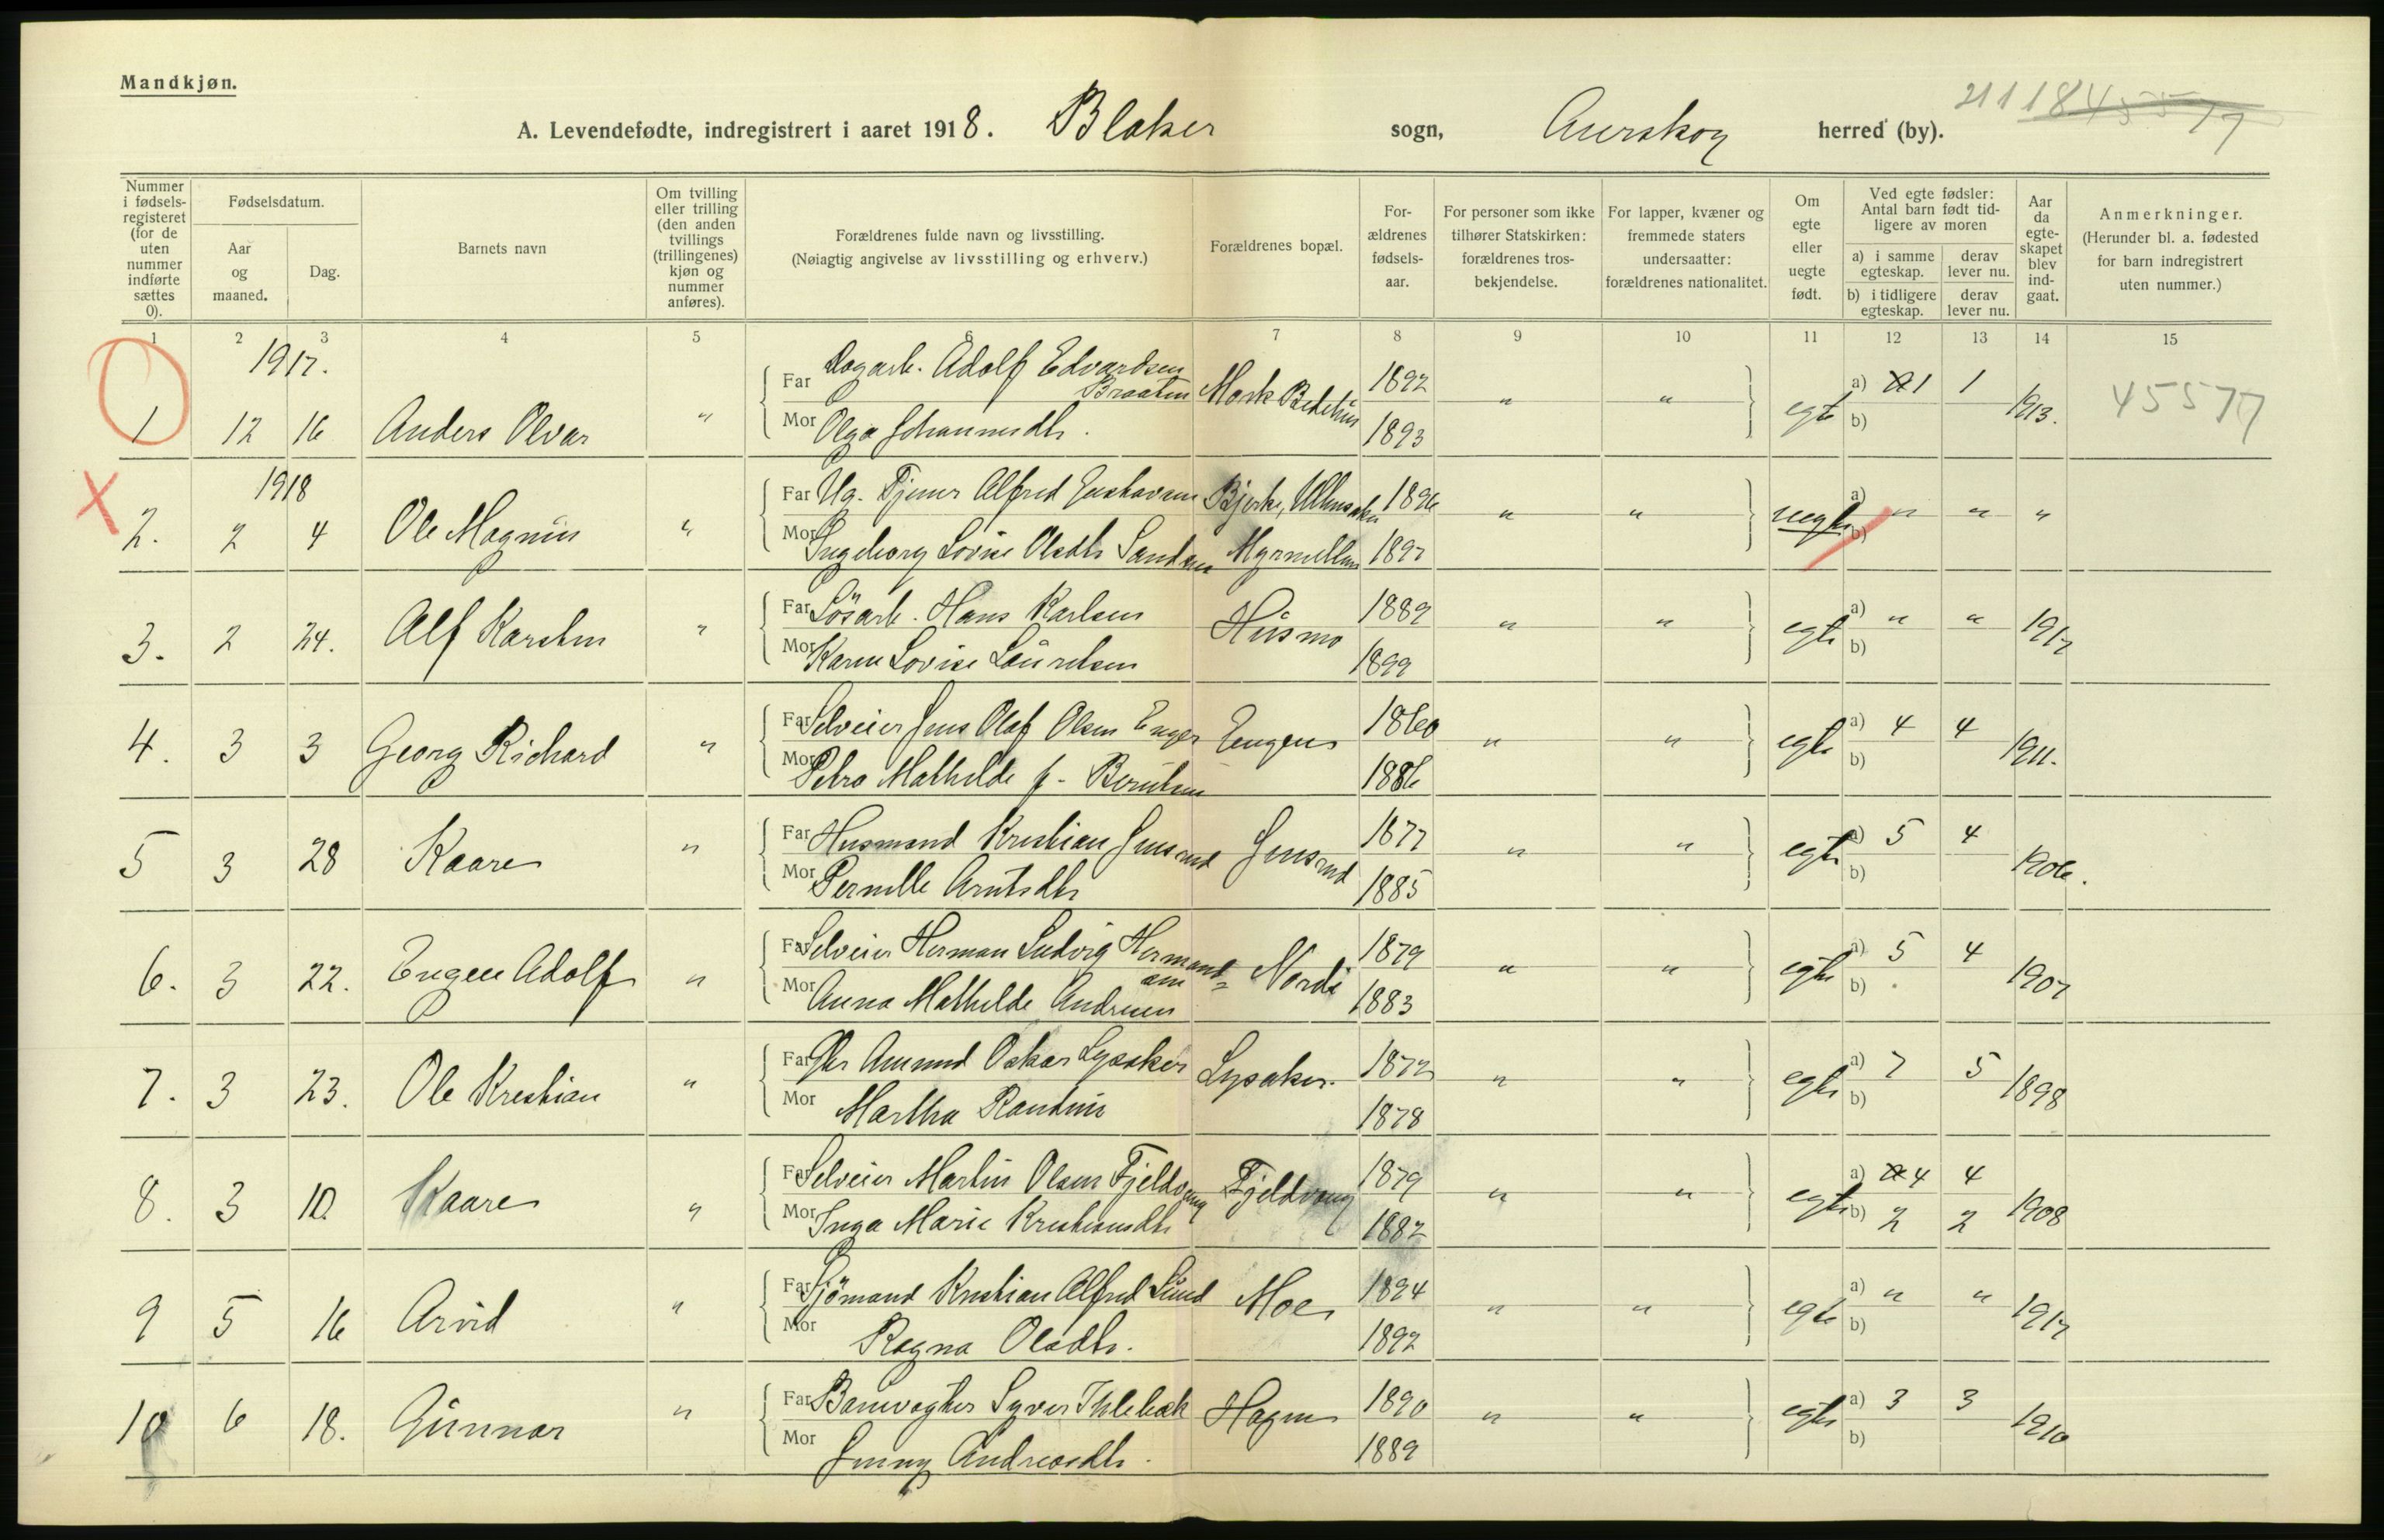 Mandkjøn.
A. Levendefødte, indregistrert i aaret 1918. Blaker sogn, Aurskog herred (by). 21118 45577
Nummer i fødsels-registeret (for de uten nummer indførte sættes 0).
Fødselsdatum.
Aar og maaned.
Dag.
Barnets navn
Om tvilling eller trilling (den anden tvillings (trillingenes) kjøn og nummer anføres).
Forældrenes fulde navn og livsstilling.
(Nøiagtig angivelse av livsstilling og erhverv.)
Forældrenes bopæl.
For-ældrenes fødsels-aar.
For personer som ikke tilhører Statskirken: forældrenes tros-bekjendelse.
For lapper, kvæner og fremmede staters undersaatter: forældrenes nationalitet.
Om egte eller uegte født.
Ved egte fødsler: Antal barn født tid-ligere av moren
a) i samme egteskap.
derav lever nu.
b) i tidligere egteskap.
derav lever nu.
Aar da egte-skapet blev ind-gaat.
Anmerkninger.
(Herunder bl. a. fødested for barn indregistrert uten nummer.)
1 2 3 4 5 6 7 8 9 10 11 12 13 14 15
1917.
1 12 16 Anders Olvar "
Far Dagarb. Adolf Edvardsen Braaten Mork 1892 " " egte a) 1 1 1913. 45577
Mor Olga Johannesdtr. 1893 b)
1918
2. 2 4 Ole Magnus "
Far Ug. Tjener Alfred Gustavsen Bjerke, Ullensaker 1896 " " uegte a) " " "
Mor Ingeborg Lovise Olsdtr Sandnes 1897 b)
3. 2 24. Alf Karsten "
Far Løsarb. Hans Karlsen Husmo 1889 " " egte a) " " 1917
Mor Karen Lovise Lauretsen 1899 b)
4. 3 3 Georg Richard "
Far Selveier Jens Olaf Olsen Enger Engen 1860 " " egte a) 4 4 1911.
Mor Petra Mathilde f. Berntsen 1886 b)
5 3 28 Kaare "
Far Husmand Kristian Jensrud Jensrud 1877 " " egte a) 5 4 1906.
Mor Pernille Arntsdtr 1885 b)
6. 3 22. Eugen Adolf "
Far Selveier Herman Ludvig Hermand- Nordi 1879 " " egte a) 5 4 1907
Mor Anna Mathilde Andresen 1883 b)
7. 3 23. Ole Kristian "
Far Gbr Amund Oskar Lysaker Lysaker. 1872 " " egte a) 7 5 1898
Mor Martha 1878 b)
8. 3 10. Kaare "
Far Selveier Martin Olsen Fjeldvang Fjeldvang 1879 " " egte a) 4 4 1908
Mor Inga Marie Kristiansdtr 1882 b) 2 2
9 5 16 Arvid "
Far Sjømand Kristian Alfred Lund Moe 1894 " " egte a) " " 1917
Mor Ragna Olsdtr. 1892 b)
10 6 18. Gunnar "
Far Banevogter Syver Ihlebæk Hagen 1890 " " egte a) 3 3 1910
Mor Jenny Andreasdtr. 1889 b)